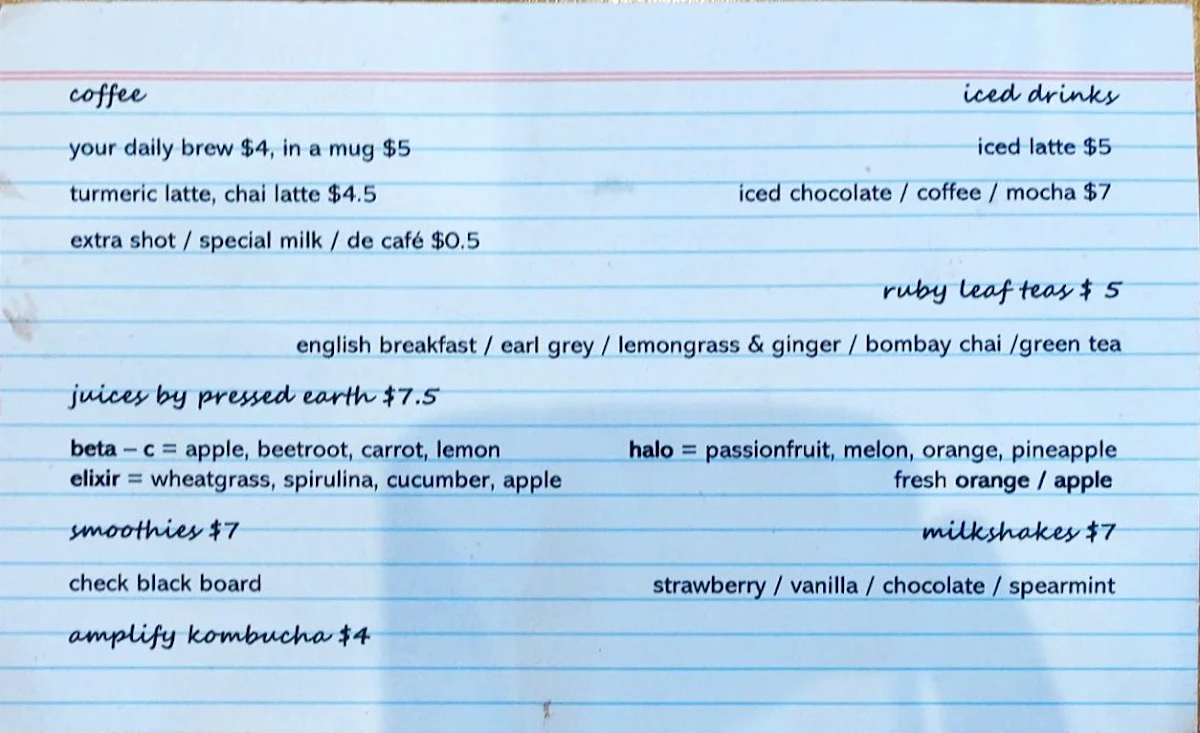 coffee
iced drinks
your daily brew $4, in a mug $5
iced latte $5
turmeric latte, chai latte $4.5
iced chocolate / coffee / mocha $7
extra shot / special milk / de café $0.5
ruby leaf teas $ 5
english breakfast / earl grey / lemongrass & ginger / bombay chai /green tea
juices by pressed earth $7.5
beta – c = apple, beetroot, carrot, lemon
halo = passionfruit, melon, orange, pineapple
elixir = wheatgrass, spirulina, cucumber, apple
fresh orange / apple
smoothies $7
milkshakes $7
check black board
strawberry / vanilla / chocolate / spearmint
amplify kombucha $4